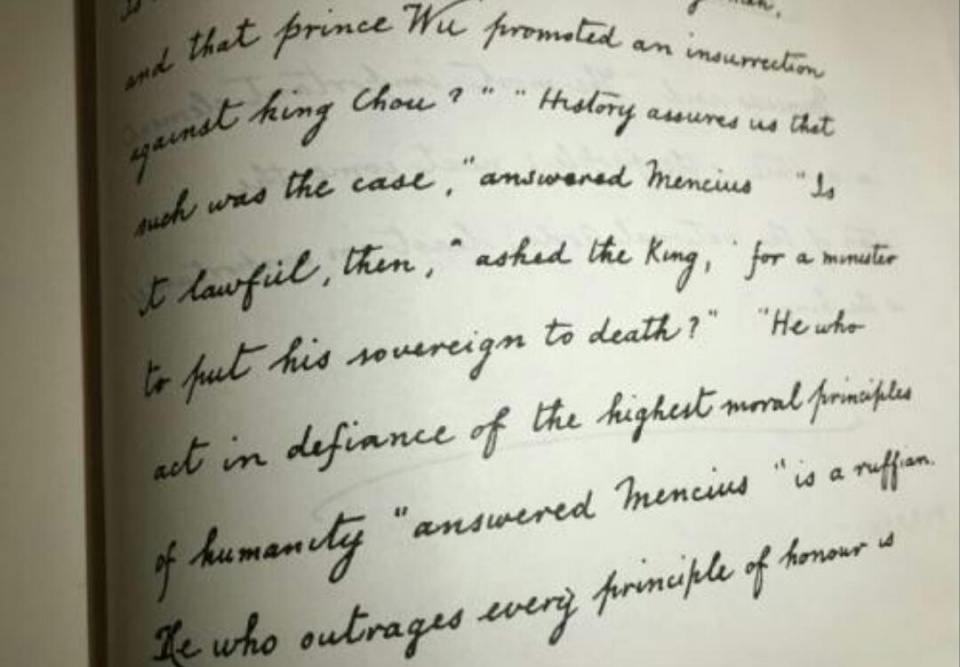 and that prince Wu promoted an insurrection
against king Chou?" "History assures us that
such was the case," answered Mencius "Is
it lawful, then," asked the King, "for a minister
to put his sovereign to death?" "He who
act in defiance of the highest moral principles
of humanity "answered Mencius "is a ruffian.
He who outrages every principle of honour is